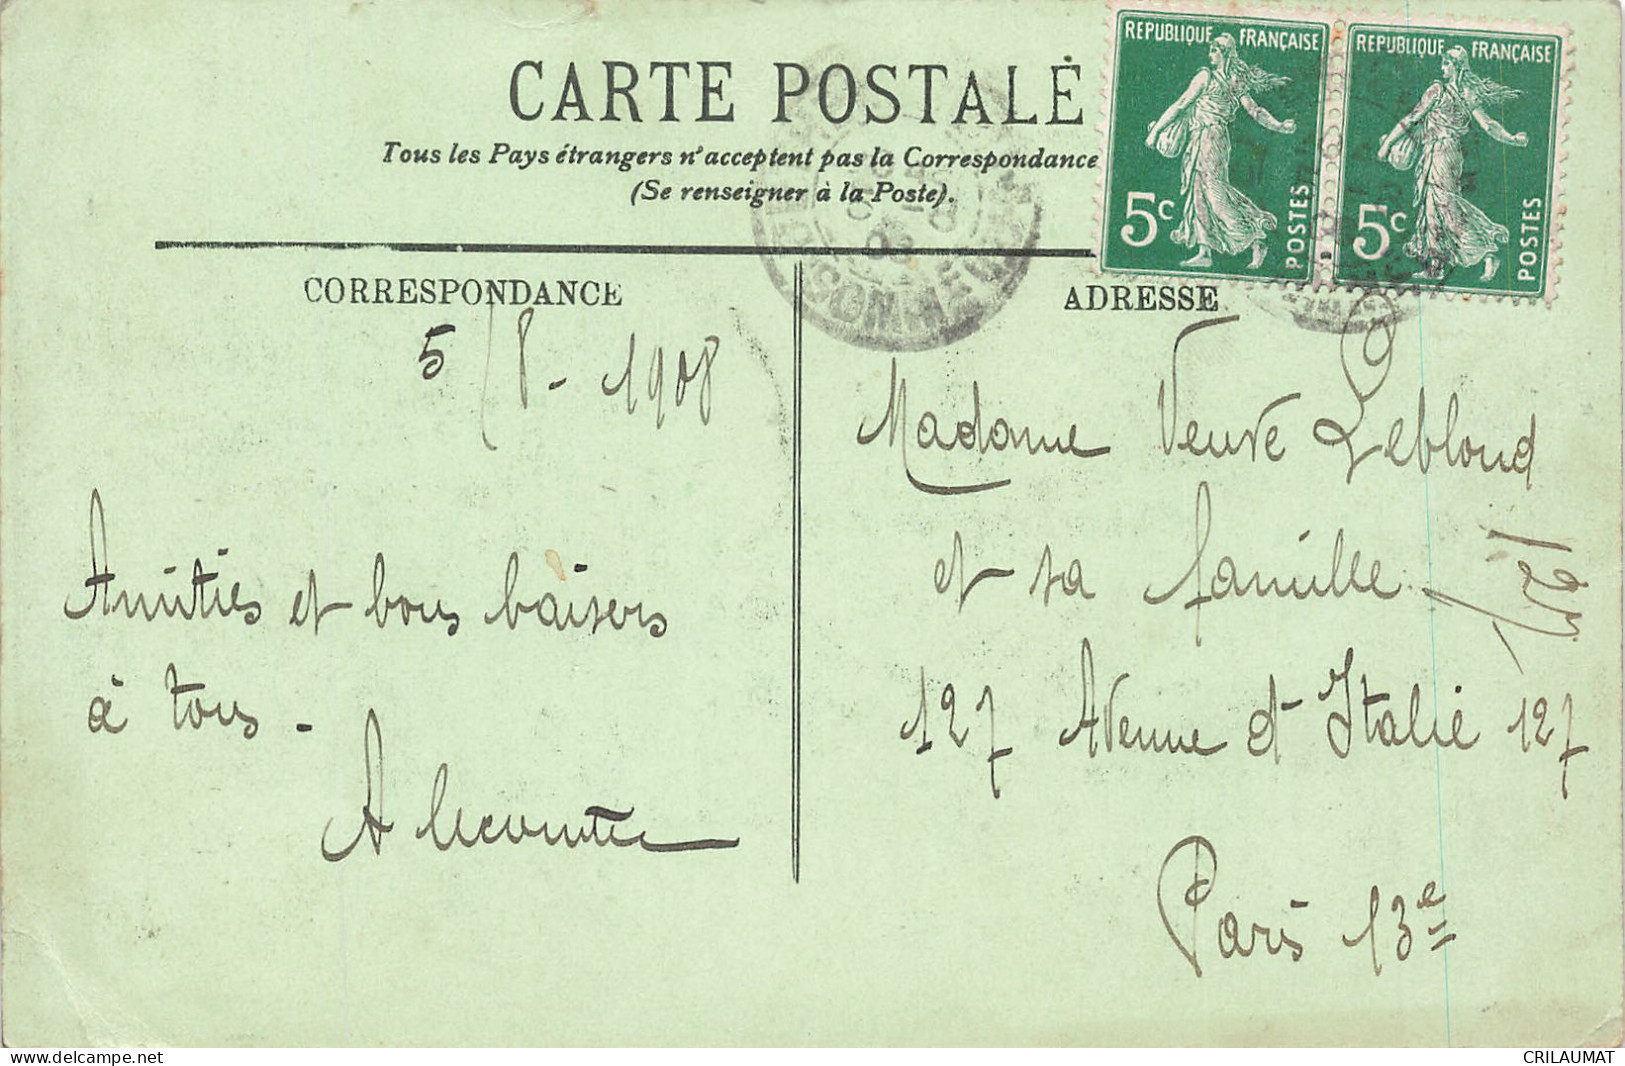 CARTE POSTALE
Tous les Pays étrangers n'acceptent pas la Correspondance
(Se renseigner à la Poste).
REPUBLIQUE FRANÇAISE
5c
POSTES
REPUBLIQUE FRANÇAISE
5c
POSTES
CORRESPONDANCE
5/8 - 1908
Amitiés et bons baisers
à tous -
A Lecomte
ADRESSE
Madame Veuve Leblond
et sa famille
127 Avenue d'Italie 127
Paris 13e
www.delcampe.net
CRILAUMAT